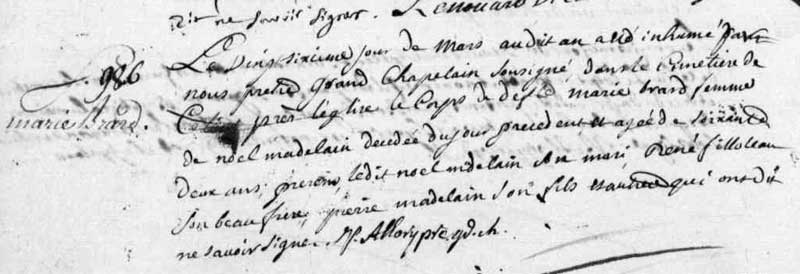 dit ne savoir signer.
Le Vingt sixieme jour de Mars audit an a été inhumé par
986 nous pretre grand Chapelain soussigné dans le Cemetiere de
marie brard. près l'église le Corps de deffte marie brard femme
de noel madelain decedée du jour precedent et ageé de soixante
deux ans, presens ledit noel madelain son mari, René filloleau
son beau frère, pierre madelain son fils et autres qui ont dit
ne savoir signer. Allory pre gd. ch.